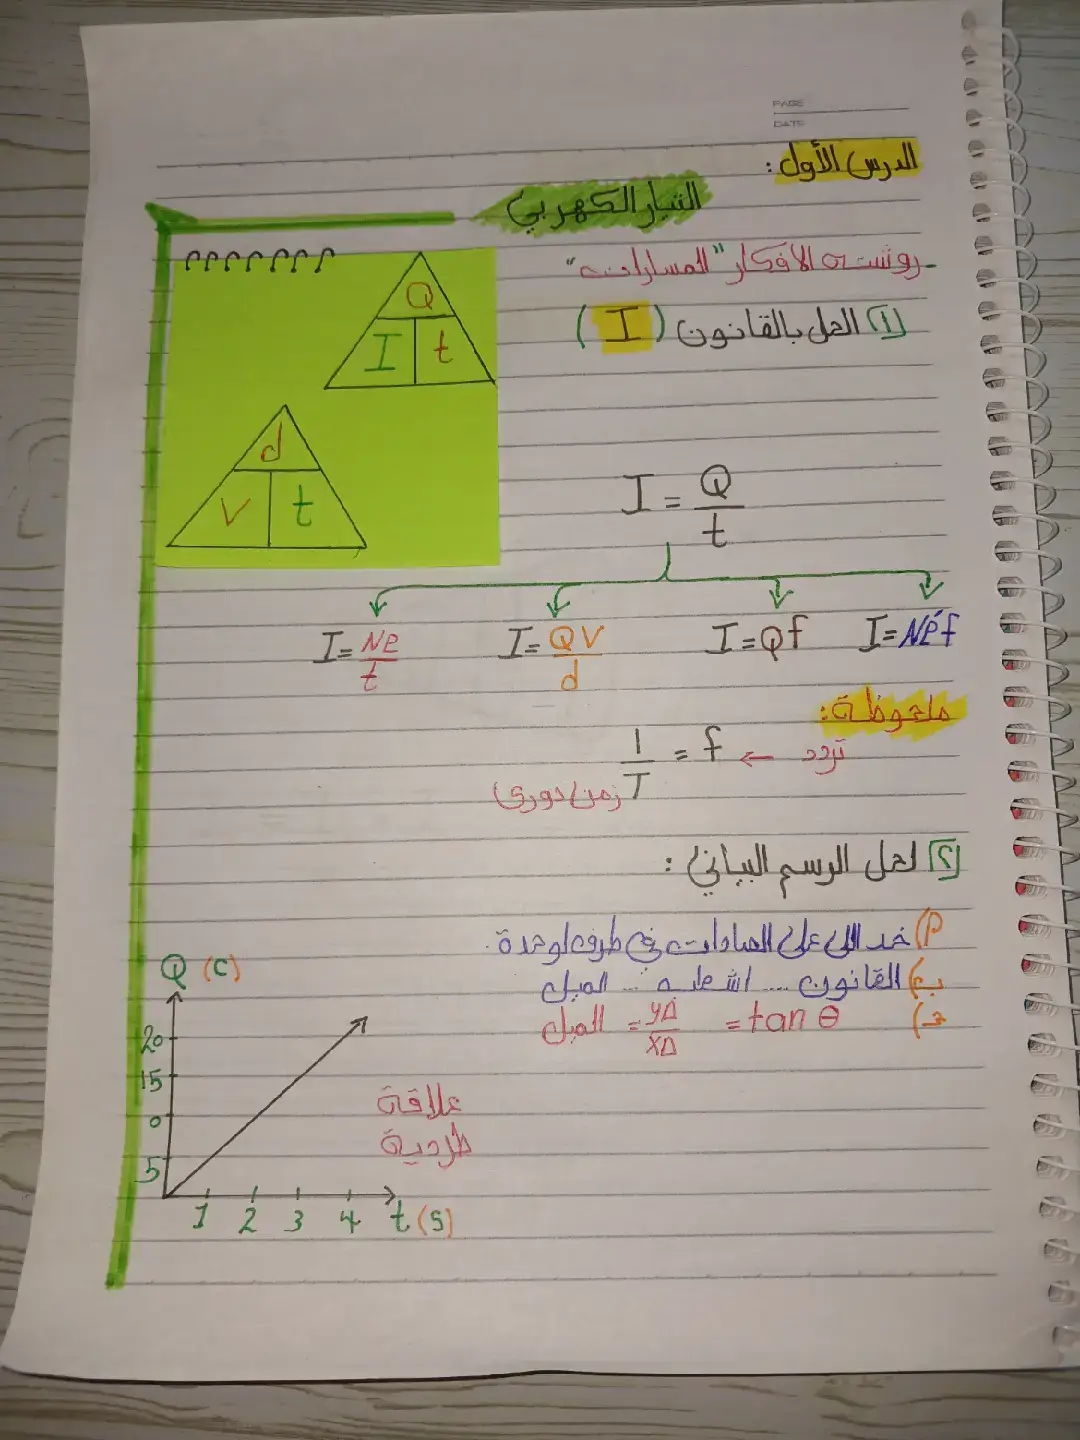 PAGE
DATE
الدرس الأول:
التيار الكهربي
روشتة الأفكار "المسارات"
[1] الحل بالقانون ( I )
Q
I t
d
V t
I = Q/t
I = Ne/t I = QV/d I = Qf I = Néf
ملحوظة:
تردد ← f = 1/T
زمن دوري
[2] لحل الرسم البياني:
P) خد اللي على الصادات في طرف لوحدة.
ب) القانون .... اشطبه ... الميل
ج) الميل = yΔ/xΔ = tan θ
Q (C)
20
15
0
5
1 2 3 4 t (s)
علاقة
طردية